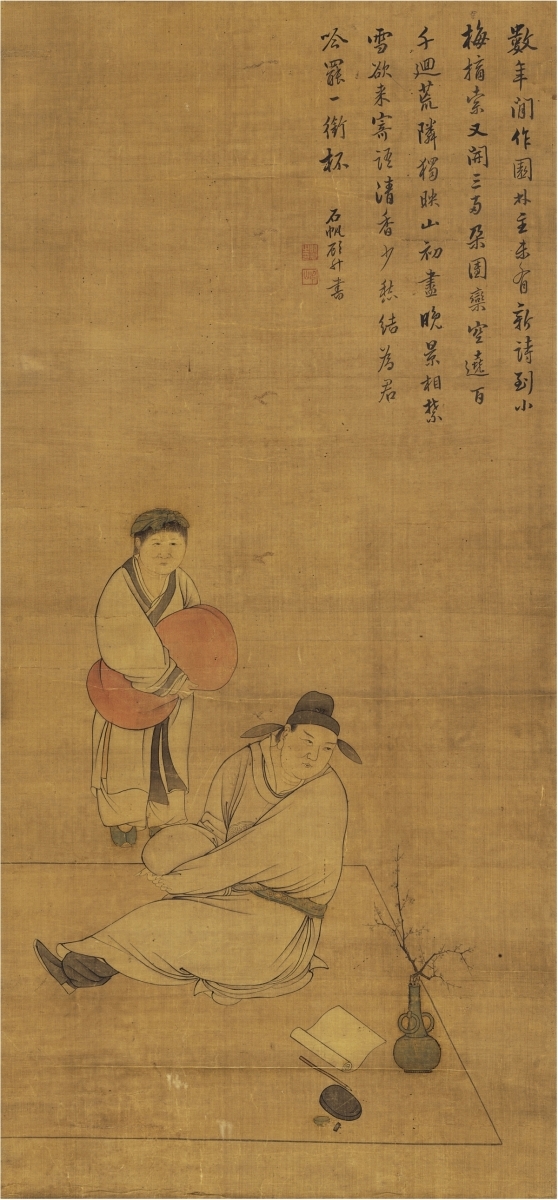 數年閒作園林主未有新詩到小
梅摘索又開三兩朶團欒空遶百
千迴荒隣獨映山初盡晚景相禁
雪欲来寄語清香少愁結為君
吟罷一銜杯
石帆顾升書